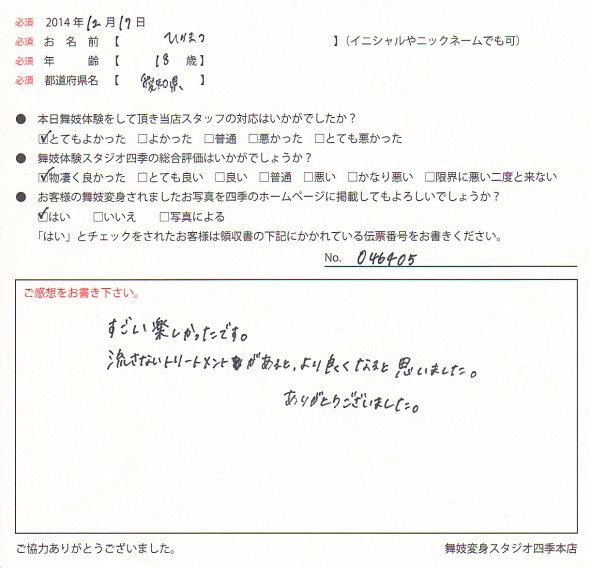 必須 2014年12月17日
必須 お名前【 ひかまつ 】(イニシャルやニックネームでも可)
必須 年齢【 18 歳】
必須 都道府県名【 愛知県 】
● 本日舞妓体験をして頂き当店スタッフの対応はいかがでしたか?
☑とてもよかった □よかった □普通 □悪かった □とても悪かった
● 舞妓体験スタジオ四季の総合評価はいかがでしょうか?
☑物凄く良かった □とても良い □良い □普通 □悪い □かなり悪い □限界に悪い二度と来ない
● お客様の舞妓変身されましたお写真を四季のホームページに掲載してもよろしいでしょうか?
☑はい □いいえ □写真による
「はい」とチェックをされたお客様は領収書の下記にかかれている伝票番号をお書きください。
No. 046405
ご感想をお書き下さい。
すごい楽しかったです。
流さないトリートメントがあると、より良くなると思いました。
ありがとうございました。
ご協力ありがとうございました。 舞妓変身スタジオ四季本店